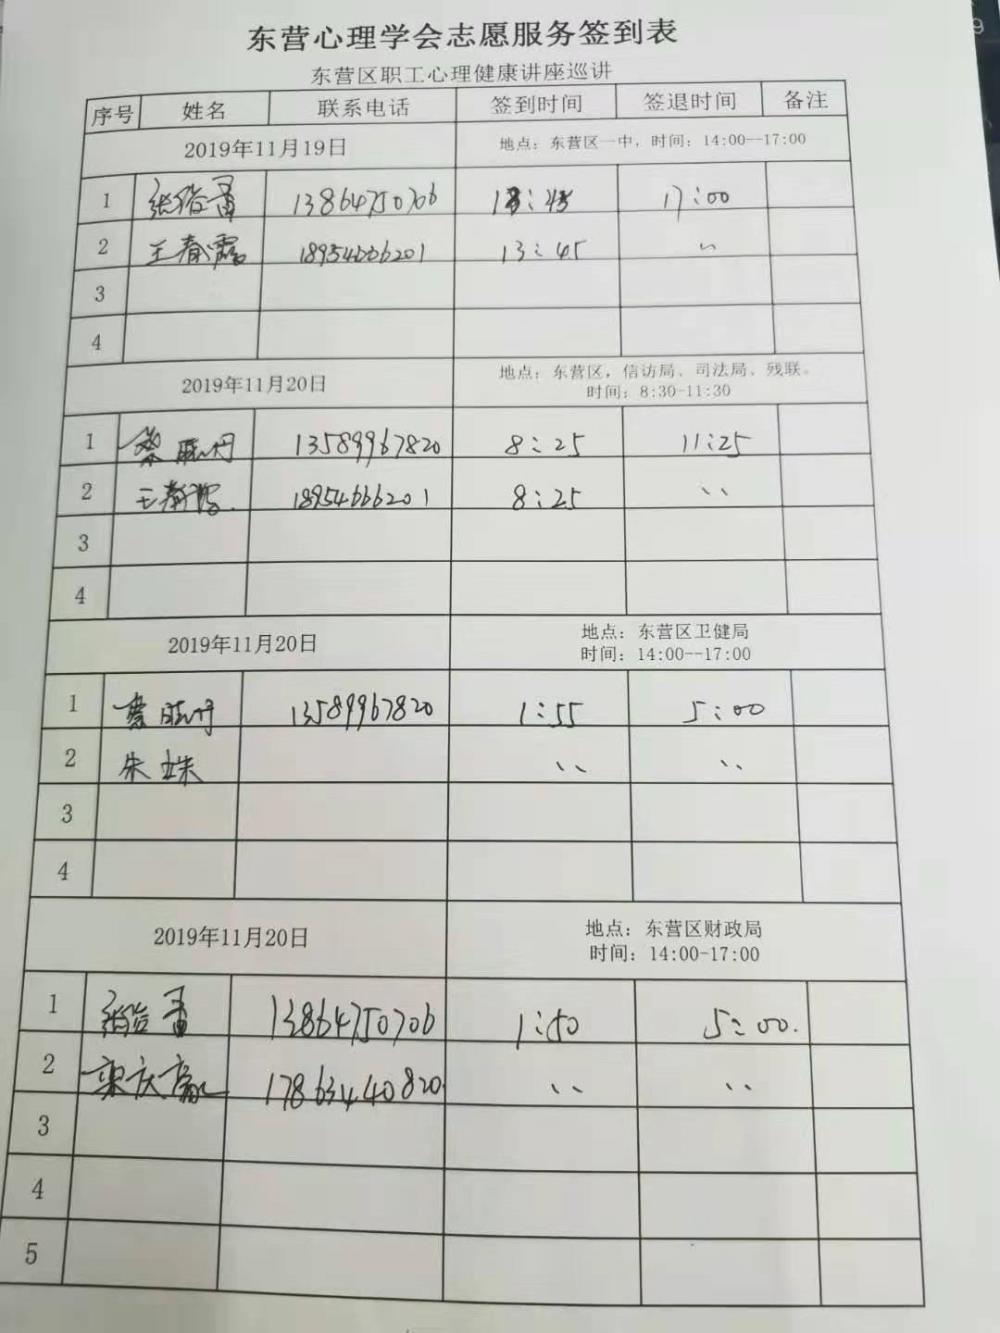 东营心理学会志愿服务签到表
东营区职工心理健康讲座巡讲
序号 姓名 联系电话 签到时间 签退时间 备注
2019年11月19日 地点：东营区一中，时间：14:00--17:00
1 13864750706 13:45 17:00
2 王春霞 18954666201 13:45 〃
3
4
2019年11月20日 地点：东营区，信访局、司法局、残联。
时间：8:30-11:30
1 13589967820 8:25 11:25
2 王春霞 18954666201 8:25 〃
3
4
2019年11月20日 地点：东营区卫健局
时间：14:00--17:00
1 13589967820 1:55 5:00
2 朱姝 〃 〃
3
4
2019年11月20日 地点：东营区财政局
时间：14:00-17:00
1 13864750706 1:50 5:00.
2 17863440820 〃 〃
3
4
5